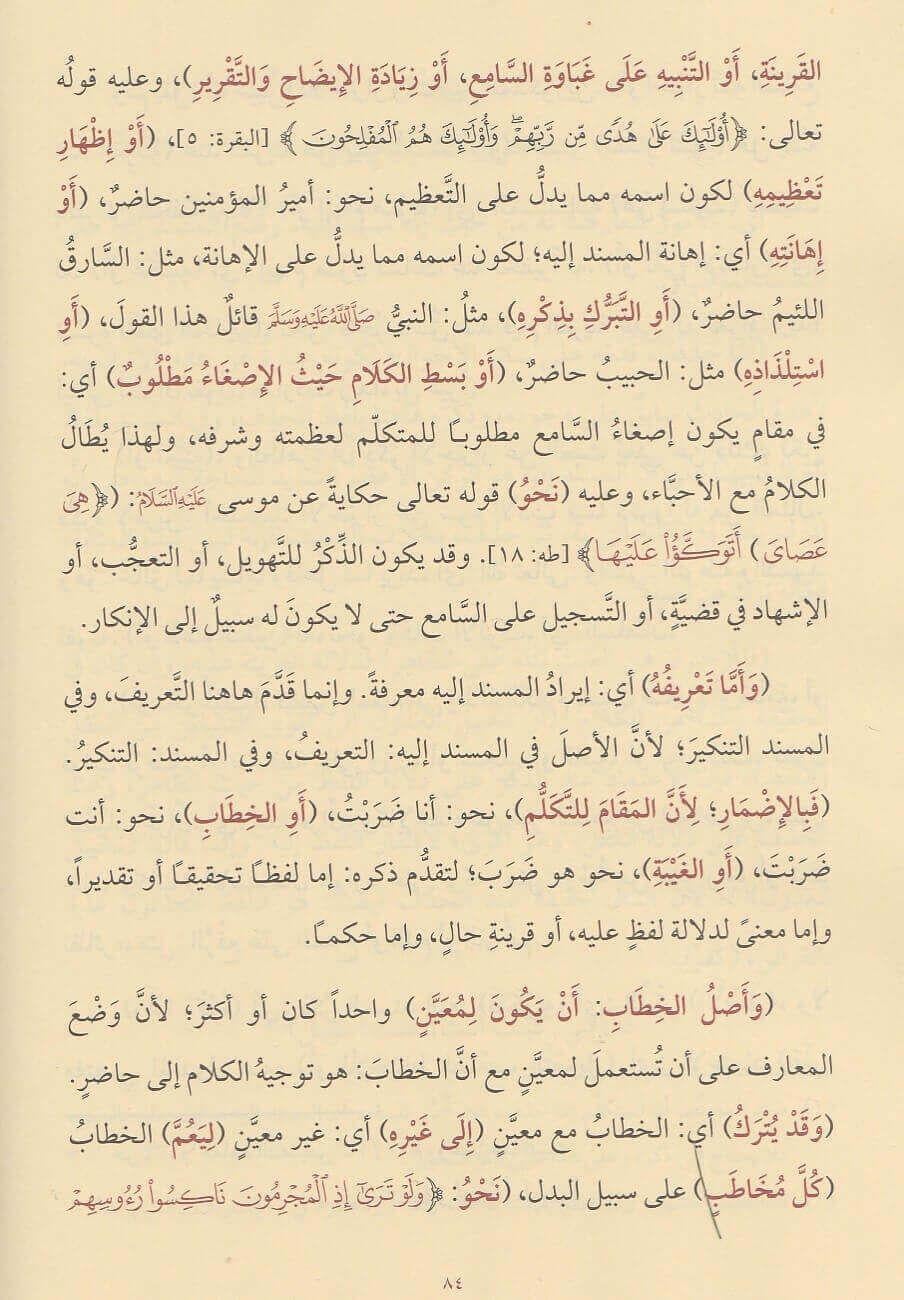 القَرِينَةِ، أَوْ التَّنْبِيهِ عَلَى غَبَاوَةِ السَّامِعِ، أَوْ زِيَادَةِ الإِيضَاحِ وَالتَّقْرِيرِ)، وعليه قولُه
تعالى: ﴿أُوْلَٰٓئِكَ عَلَىٰ هُدًى مِّن رَّبِّهِمْۖ وَأُوْلَٰٓئِكَ هُمُ ٱلْمُفْلِحُونَ﴾ [البقرة: ٥]، (أَوْ إِظْهَارِ
تَعْظِيمِهِ) لكون اسمه مما يدلُّ على التَّعظيم، نحو: أميرُ المؤمنين حاضرٌ، (أَوْ
إِهَانَتِهِ) أي: إهانة المسند إليه؛ لكون اسمه مما يدلُّ على الإهانة، مثل: السَّارقُ
اللئيمُ حاضرٌ، (أَوِ التَّبَرُّكِ بِذِكْرِهِ)، مثلُ: النبيُّ صَلَّى اللَّهُ عَلَيْهِ وَسَلَّمَ قائلٌ هذا القولَ، (أَوِ
اسْتِلْذَاذِهِ) مثل: الحبيبُ حاضرٌ، (أَوْ بَسْطِ الكَلَامِ حَيْثُ الإِصْغَاءُ مَطْلُوبٌ) أي:
في مقامٍ يكون إصغاءُ السَّامع مطلوبـاً للمتكلّم لعظمته وشرفه، ولهذا يُطَالُ
الكلامُ مع الأحبَّاء، وعليه (نَحْوُ) قوله تعالى حكايةً عن موسى عَلَيْهِ السَّلَامُ: (﴿هِيَ
عَصَايَ) أَتَوَكَّؤُاْ عَلَيْهَا﴾ [طه: ١٨]. وقد يكون الذِّكْرُ للتَّهويل، أو التعجُّب، أو
الإشهاد في قضيَّةٍ، أو التَّسجيل على السَّامع حتى لا يكونَ له سبيلٌ إلى الإنكار.
(وَأَمَّا تَعْرِيفُهُ) أي: إيرادُ المسند إليه معرفةً. وإنما قَدَّمَ هاهنا التَّعريفَ، وفي
المسند التنكيرَ؛ لأنَّ الأصلَ في المسند إليه: التعريفُ، وفي المسند: التنكيرُ.
(فَبِالإِضْمَارِ؛ لِأَنَّ المَقَامَ لِلتَّكَلُّمِ)، نحو: أنا ضَرَبْتُ، (أَوِ الخِطَابِ)، نحو: أنت
ضَرَبْتَ، (أَوِ الغَيْبَةِ)، نحو هو ضَرَبَ؛ لتقدُّم ذكره: إما لفظـاً تحقيقـاً أو تقديراً،
وإما معنىً لدلالة لفظٍ عليه، أو قرينةِ حالٍ، وإما حكمـاً.
(وَأَصْلُ الخِطَابِ: أَنْ يَكُونَ لِمُعَيَّنٍ) واحداً كان أو أكثرَ؛ لأنَّ وَضْعَ
المعارف على أن تُستعملَ لمعيَّنٍ مع أنَّ الخطابَ: هو توجيهُ الكلام إلى حاضرٍ.
(وَقَدْ يُتْرَكُ) أي: الخطابُ مع معيَّنٍ (إِلَى غَيْرِهِ) أي: غير معيَّنٍ (لِيَعُمَّ) الخطابُ
(كُلَّ مُخَاطَبٍ) على سبيل البدل، (نَحْوُ: ﴿وَلَوْ تَرَىٰٓ إِذِ ٱلْمُجْرِمُونَ نَاكِسُواْ رُءُوسِهِمْ
٨٤